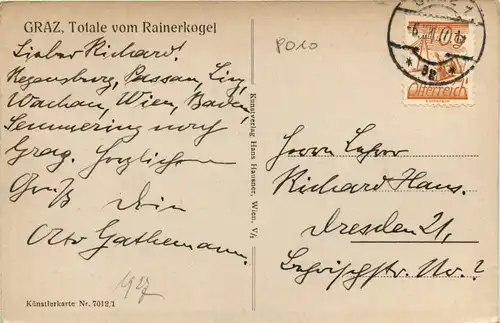 GRAZ, Totale vom Rainerkogel
Lieber Richard.
Regensburg, Passau, Linz,
Wachau, Wien, Baden,
Semmering nach
Graz. Herzlichen
Gruß Dein
Otto Gathemann.
1927
Künstlerkarte Nr. 7012/1
Kunstverlag Hans Hausner, Wien, V/2
PO10
GRAZ 1
Österreich
Herrn Lehrer
Richard Hans.
Dresden 21,
Nr. ?